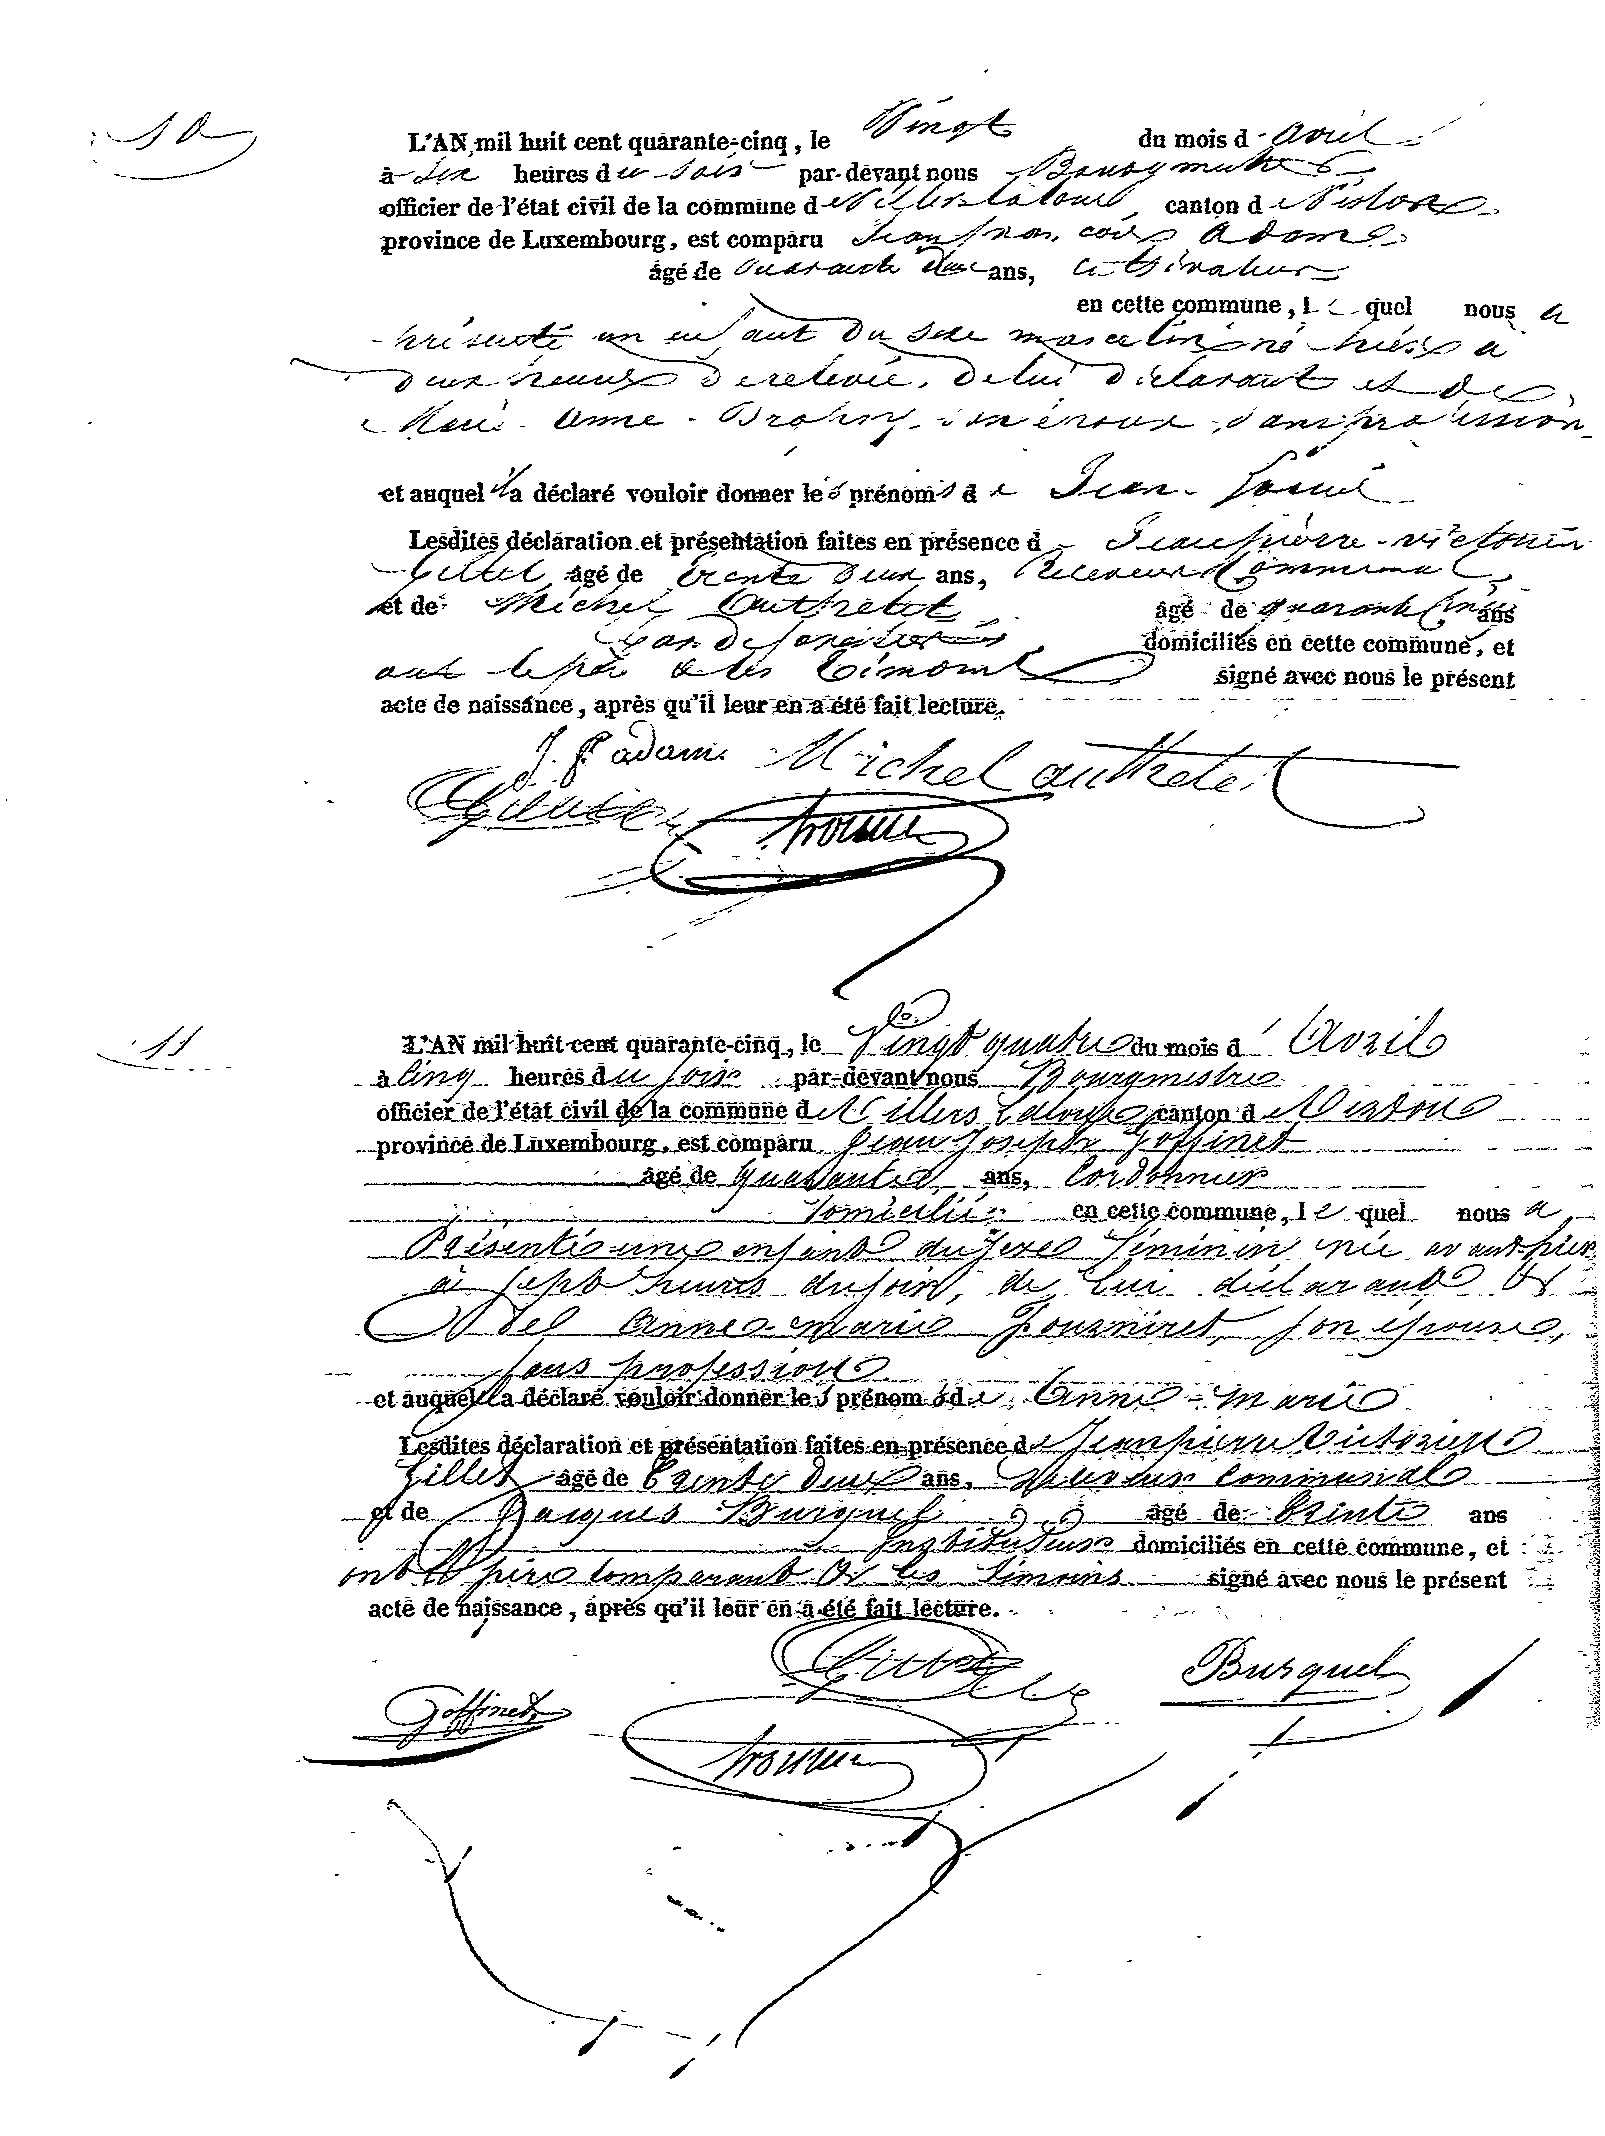 10
L'AN mil huit cent quarante-cinq, le Vingt du mois d'avril
à six heures du soir par-devant nous Bourgmestre
officier de l'état civil de la commune de Villers la loue canton de Virton
province de Luxembourg, est comparu Jean françois Adam
âgé de quarante deux ans, Cultivateur
en cette commune, le quel nous a
présenté un enfant du sexe masculin né hier à
deux heures de relevée, de lui déclarant et de
Marie Anne son épouse, sans profession
et auquel il a déclaré vouloir donner les prénoms de Jean
Lesdites déclaration et présentation faites en présence de Jean pierre victorien
Gillet âgé de trente deux ans, Receveur Communal
et de Michel Authelet âgé de quarante cinq ans
garde forestier domiciliés en cette commune, et
ont le père & les témoins signé avec nous le présent
acte de naissance, après qu'il leur en a été fait lecture.
J. f. adam Michel authelet
Gillet
11
L'AN mil huit cent quarante-cinq, le Vingt quatre du mois d'Avril
à cinq heures du soir par-devant nous Bourgmestre
officier de l'état civil de la commune de Villers Laloue canton de Virton
province de Luxembourg, est comparu Jean Joseph Goffinet
âgé de quarante ans, Cordonnier
domicilié en cette commune, le quel nous a
Présenté une enfant du sexe féminin née avant hier
à sept heures du soir, de lui déclarant &
del Anne marie Fourniret, son épouse,
sans profession
et auquel il a déclaré vouloir donner les prénoms de Anne-marie
Lesdites déclaration et présentation faites en présence de Jean pierre Victorien
Gillet âgé de trente deux ans, Receveur communal
et de Jacques Burquel âgé de trente ans
Instituteur domiciliés en cette commune, et
ont le père comparant & les témoins signé avec nous le présent
acte de naissance, après qu'il leur en a été fait lecture.
Gillet Burquel
Goffinet